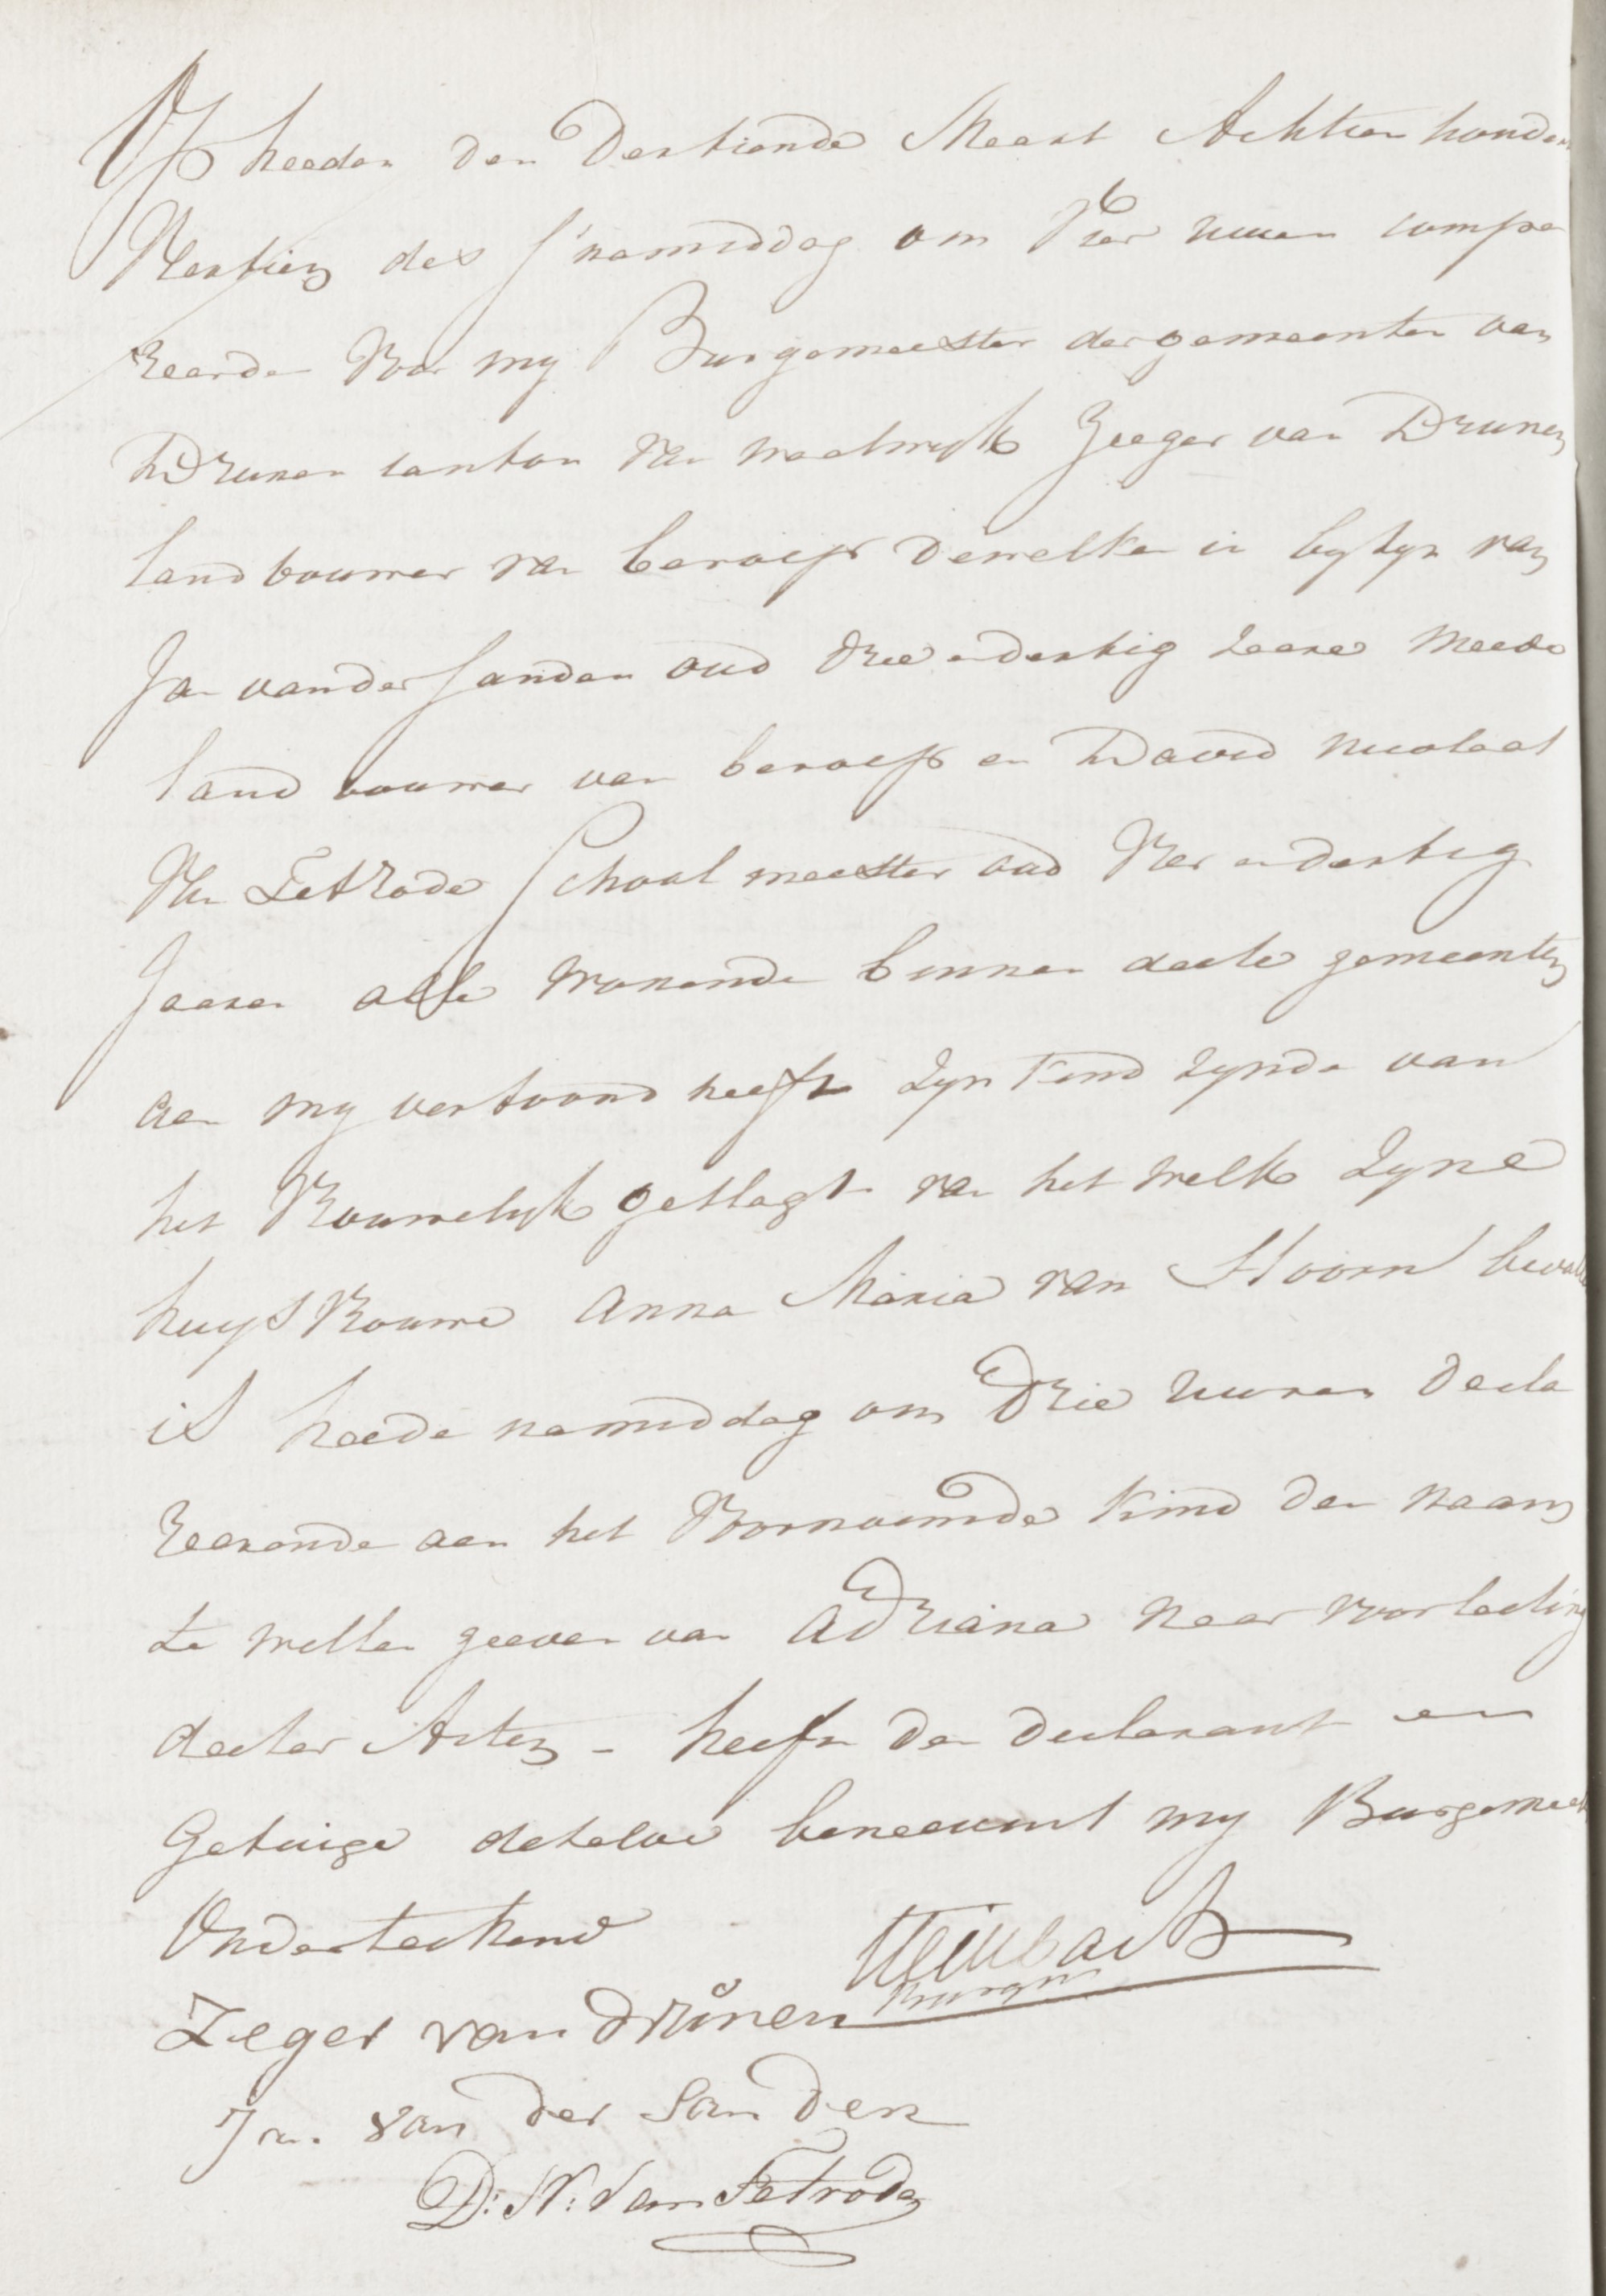 Op heeden den Dertiende Meert Achtien honder
Veertien des s'namiddag om Vier uuren compa
reerde Voor my Burgemeester der gemeenten van
Drunen canton van Waalwyk Zeeger van Drunen
landbouwer van beroep dewelke in bysyn van
Jan vander Sanden oud drie endertig Jaare meede
land bouwer van beroep en David Nicolaas
Van Tetrode School meester oud Vier endertig
Jaaren alle wonende binnen deese gemeenten
aen my vertoond heeft zyn kind zynde van
het Vrouwelyk geslagt van het welk zyne
huys Vrouwe Anna Maria van Hoorn bevalle
is heede namiddag om Drie uuren decla
reerende aen het Voornoemde kind den naam
te willen geeven van Adriana naer voorleesing
deeser Acten - heeft de declarant en
Getuige deselve beneevens my Burgemees
Onderteekend
Burgm
Zeger van Drunen
Jan van der Sanden
D: N: Van Tetrode